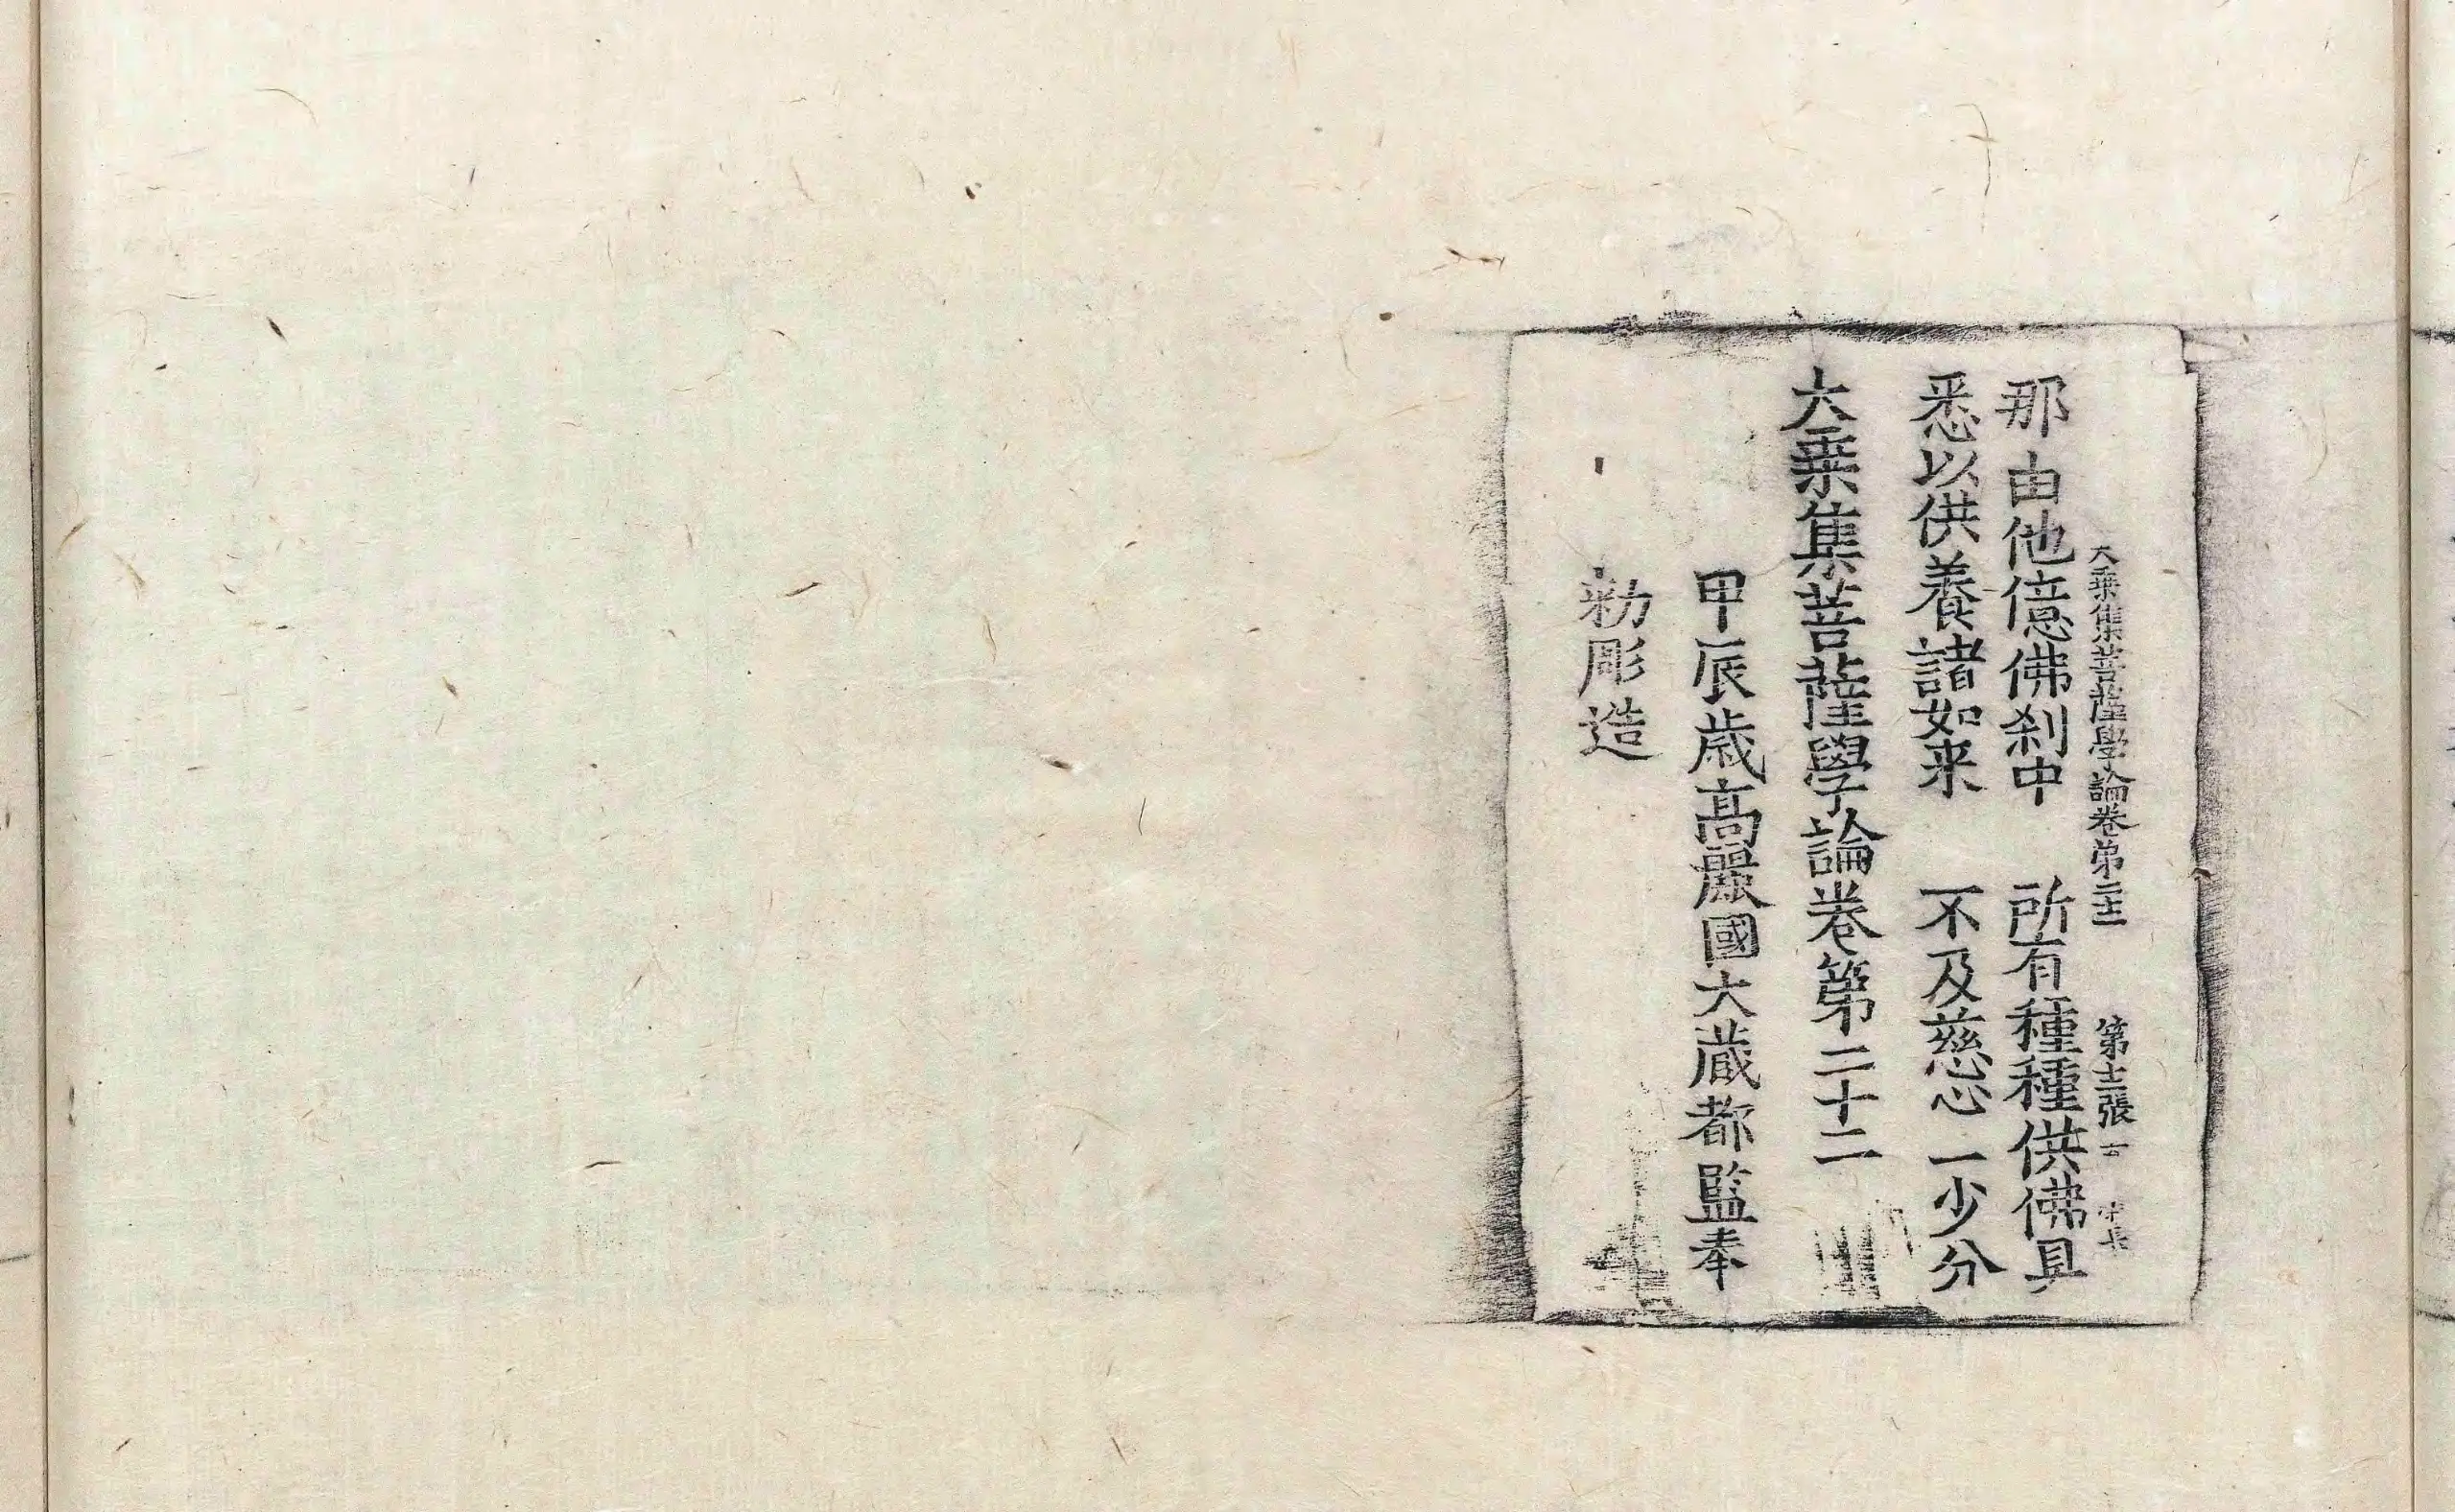 大乗集菩薩學論卷第二十二 第十二張
那由他億佛刹中 所有種種供佛具
悉以供養諸如来 不及慈心一少分
大乗集菩薩學論卷第二十二
甲辰歳高麗國大藏都監奉
勅彫造